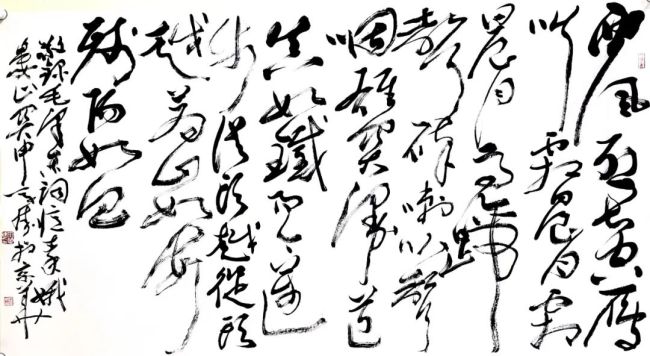 西风烈长空雁
叫霜晨月霜
晨月马蹄
声碎喇叭声
咽雄关漫道
真如铁而今迈
步从头越从头
越苍山如海
残阳如血
敬录毛泽东词忆秦娥
娄山关甲午书于京华